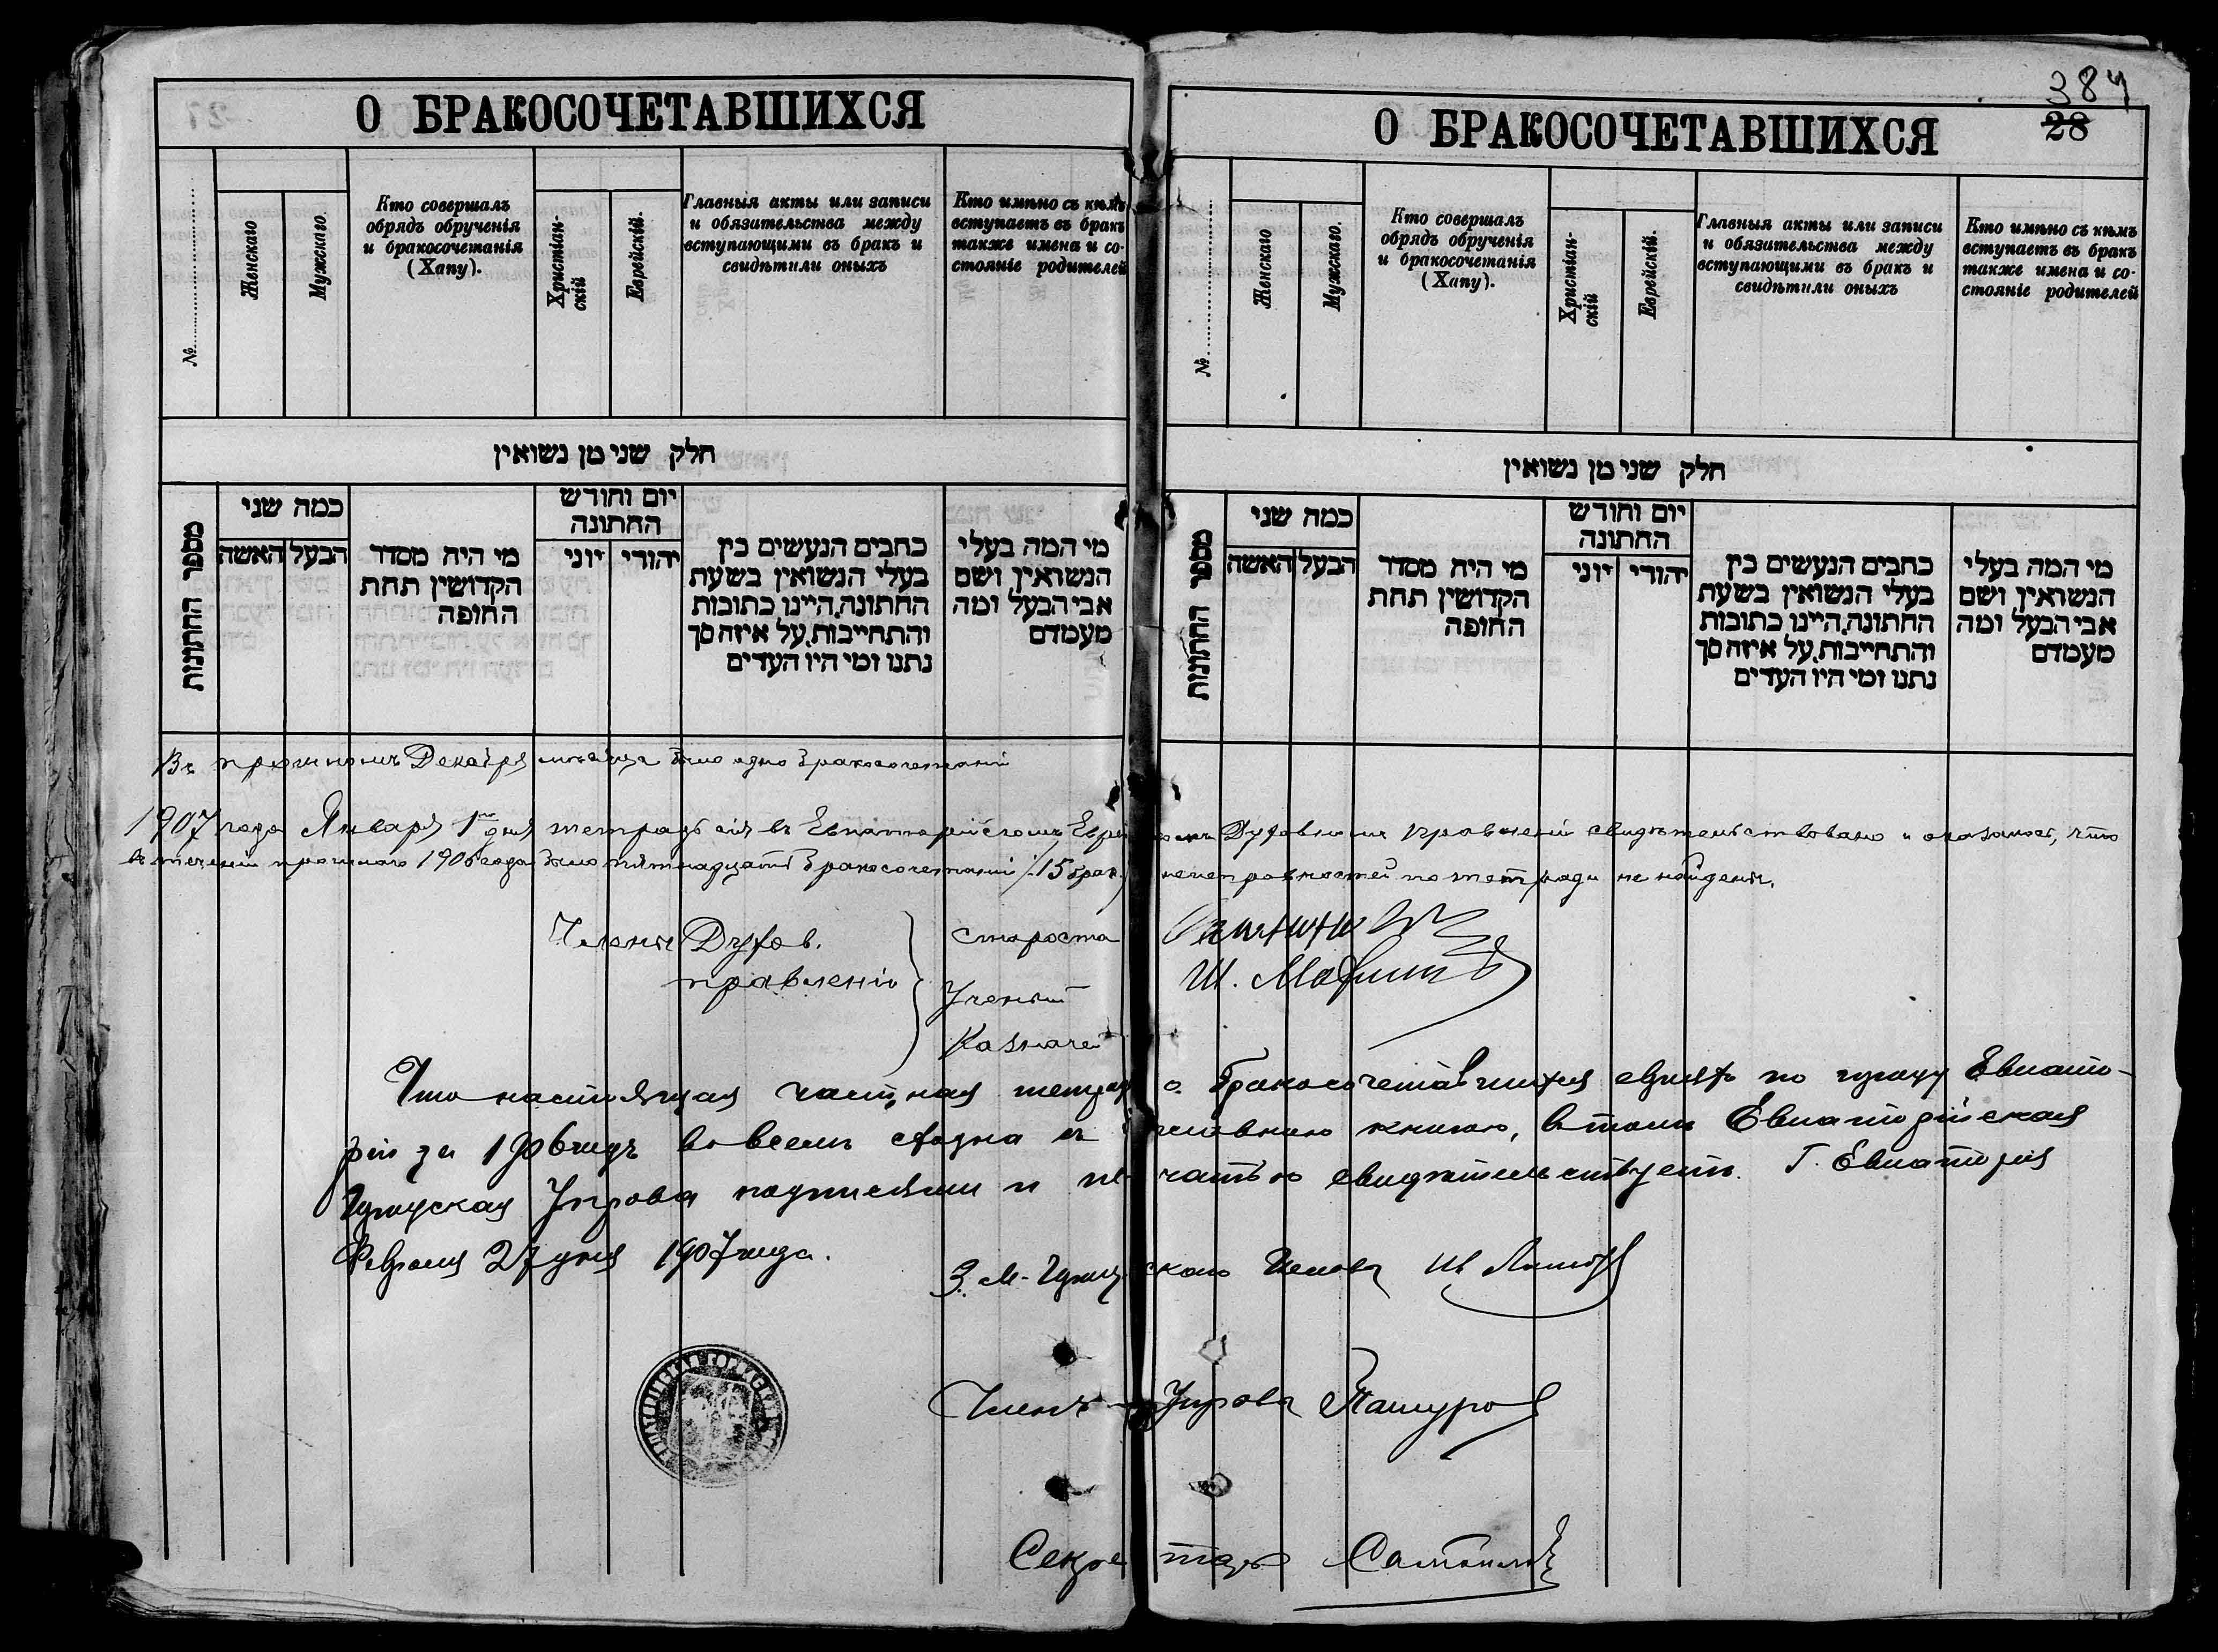 О БРАКОСОЧЕТАВШИХСЯ
№
Женскаго
Мужскаго.
Кто совершалъ
обрядъ обрученія
и бракосочетанія
(Хапу).
Христіан-
скій
Еврейскій.
Главныя акты или записи
и обязательства между
вступающими въ бракъ и
свидѣтили оныхъ
Кто имѣно съ кѣмъ
вступаетъ въ бракъ
также имена и со-
стояніе родителей
חלק שני מן נשואין
מספר החתונות
כמה שני
הבעל
האשה
מי היה מסדר
הקדושין תחת
החופה
יום וחודש
החתונה
יהודי
יוני
כתבים הנעשים בין
בעלי הנשואין בשעת
החתונה, היינו כתובות
והתחייבות, על איזה סך
נתנו ומי היו העדים
מי המה בעלי
הנשואין ושם
אבי הבעל ומה
מעמדם
384
28
О БРАКОСОЧЕТАВШИХСЯ
№
Женскаго
Мужскаго.
Кто совершалъ
обрядъ обрученія
и бракосочетанія
(Хапу).
Христіан-
скій
Еврейскій.
Главныя акты или записи
и обязательства между
вступающими въ бракъ и
свидѣтили оныхъ
Кто имѣно съ кѣмъ
вступаетъ въ бракъ
также имена и со-
стояніе родителей
חלק שני מן נשואין
מספר החתונות
כמה שני
הבעל
האשה
מי היה מסדר
הקדושין תחת
החופה
יום וחודש
החתונה
יהודי
יוני
כתבים הנעשים בין
בעלי הנשואין בשעת
החתונה, היינו כתובות
והתחייבות, על איזה סך
נתנו ומי היו העדים
מי המה בעלי
הנשואין ושם
אבי הבעל ומה
מעמדם
Въ прошломъ Декабря мѣсяца было одно бракосочетаній
1907 года Января 1го дня тетрадь сія въ Евпаторійскомъ Еврейскомъ Духовномъ правленіи свидѣтельствовано и оказалось, что
въ теченіи прошлаго 1906 года было пятнадцать бракосочетаній /.15 брак./ неисправностей по тетради не найдены.
Члены Духов.
правленія
староста
Ученый
Казначей
Ш.
Что настоящая частная тетрадь о бракосочетавшихся евреяхъ по городу Евпато-
ріи за 1906 годъ во всемъ сходна съ шнуровою книгою, въ томъ Евпаторійская
Городская Управа подписями и печатью свидѣтельствуетъ. Г. Евпаторія
Февраля 27 дня 1907 года.
З. М. Городскаго Головы Ш
Членъ Управы
Секретарь